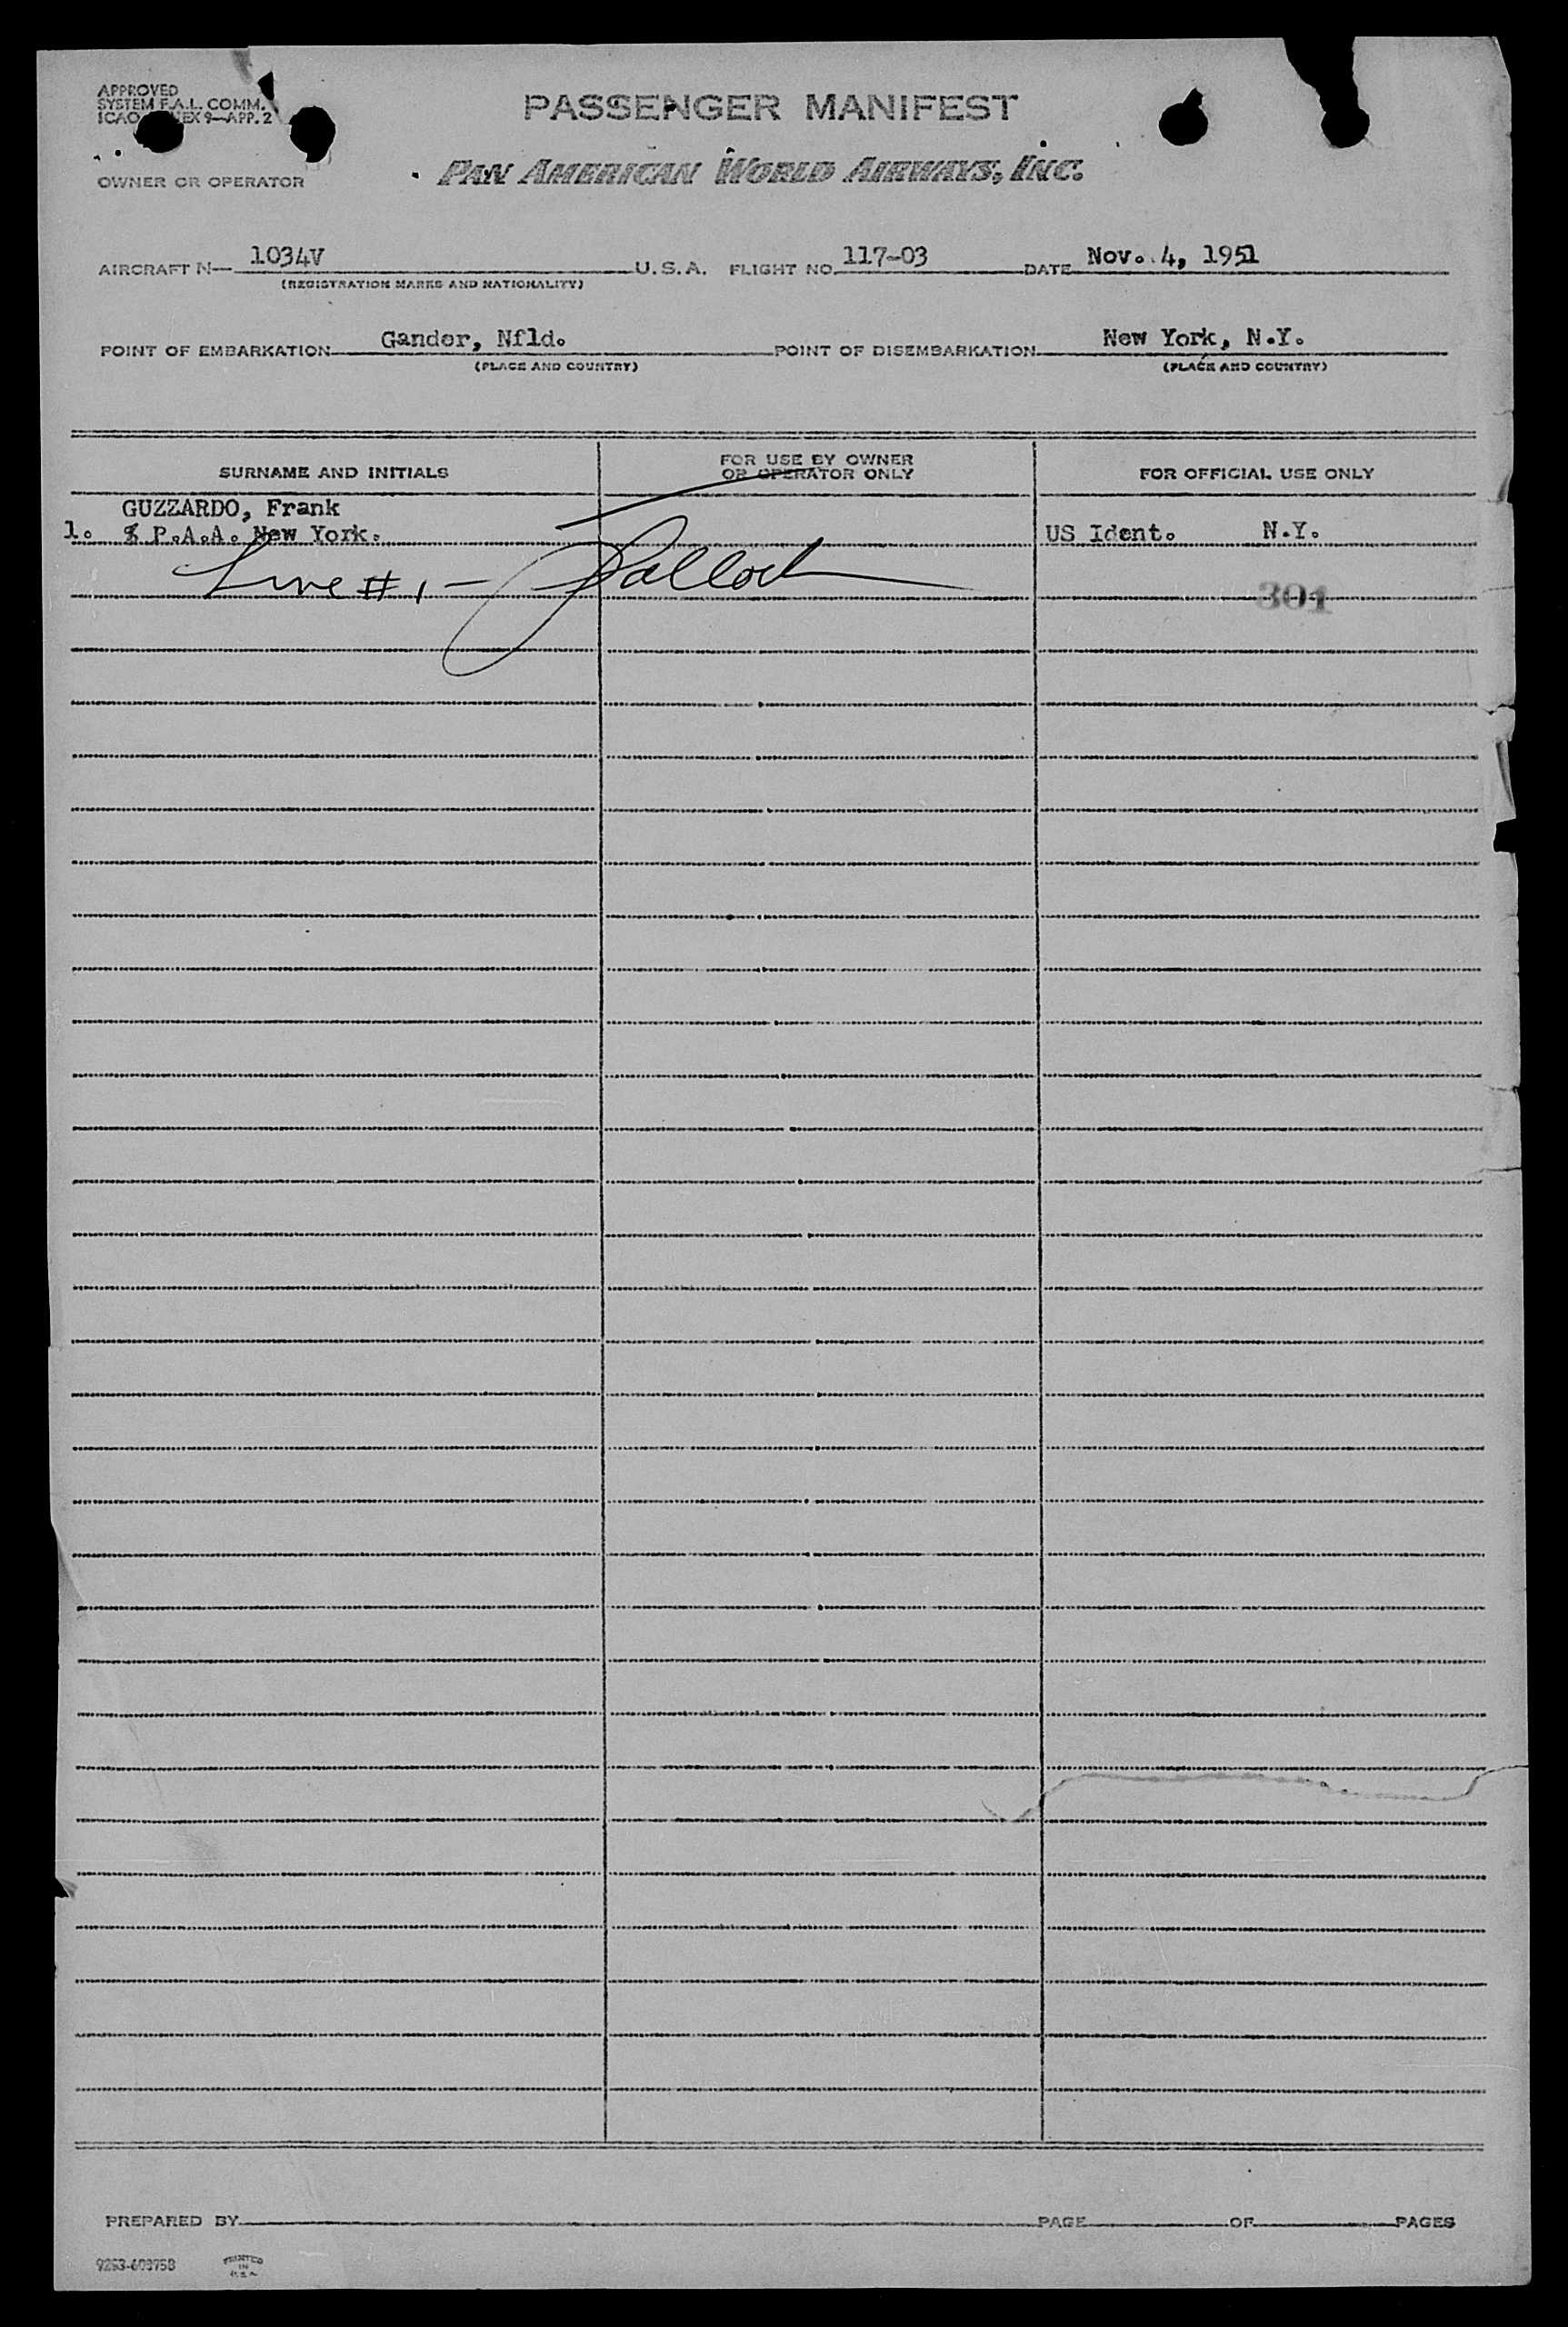 APPROVED
SYSTEM F.A.L. COMM.
ICAO EX 9—APP. 2
PASSENGER MANIFEST
OWNER OR OPERATOR
PAN AMERICAN WORLD AIRWAYS, INC.
AIRCRAFT N— 1034V U.S.A. FLIGHT NO. 117-03 DATE Nov. 4, 1951
(REGISTRATION MARKS AND NATIONALITY)
POINT OF EMBARKATION Gander, Nfld. POINT OF DISEMBARKATION New York, N.Y.
(PLACE AND COUNTRY) (PLACE AND COUNTRY)
SURNAME AND INITIALS FOR USE BY OWNER OR OPERATOR ONLY FOR OFFICIAL USE ONLY
GUZZARDO, Frank
1. % P.A.A. New York. US Ident. N.Y.
Line #1 – Pollock
301
PREPARED BY PAGE OF PAGES
PRINTED
IN
U.S.A.